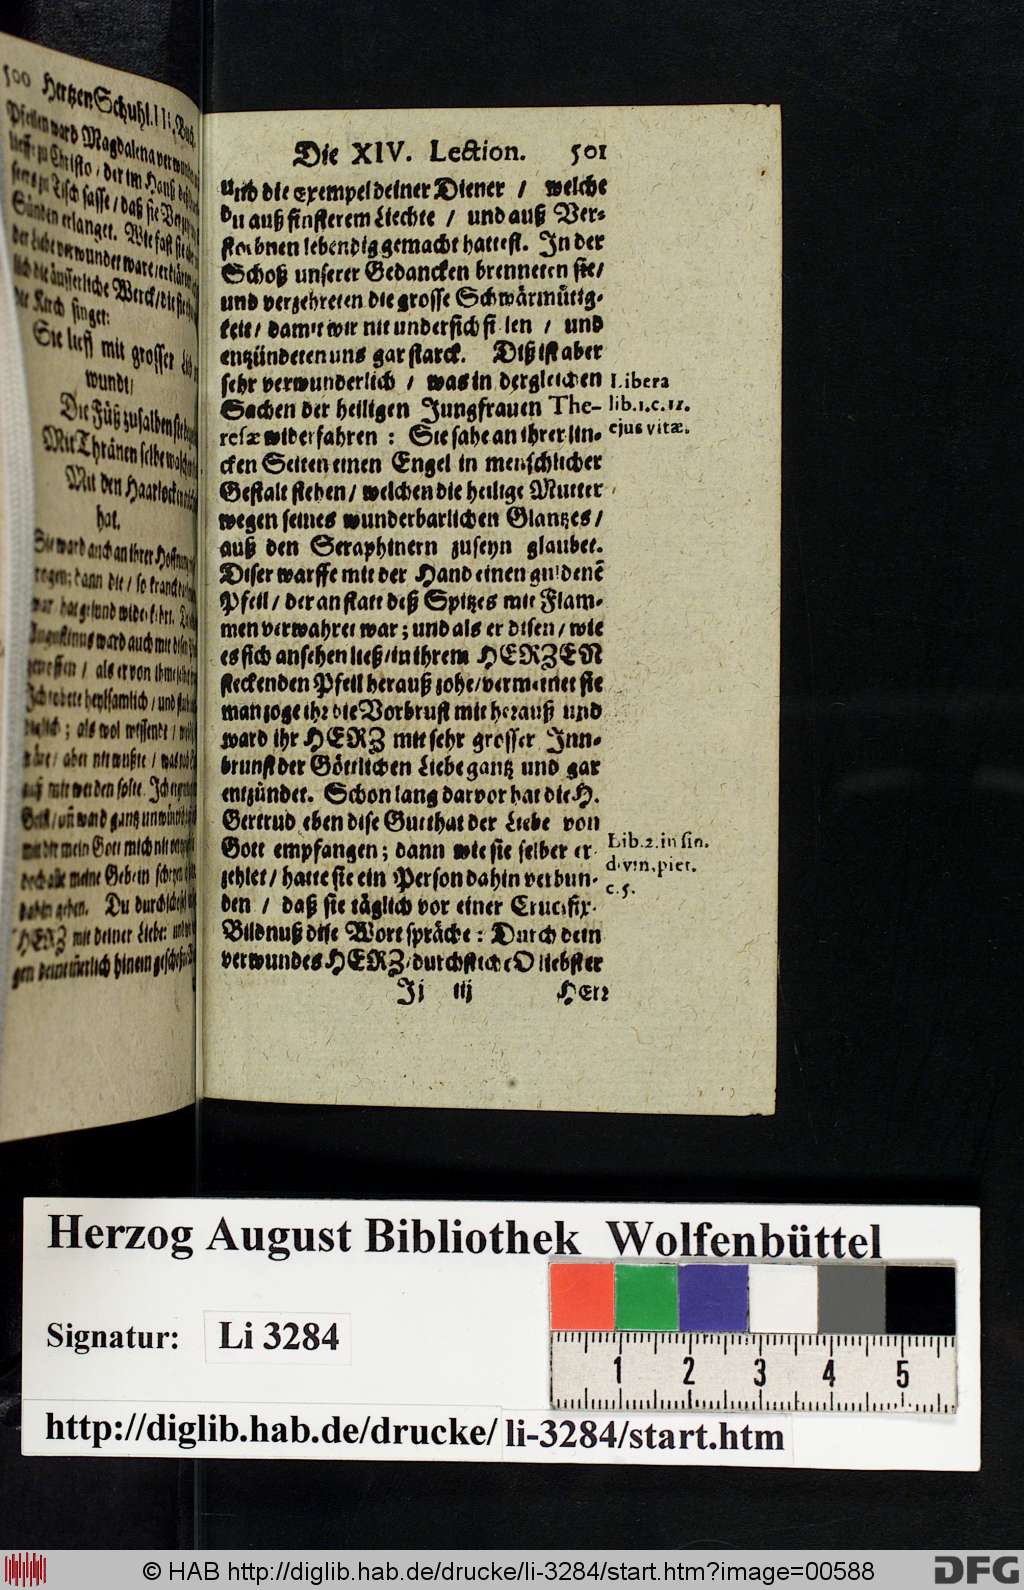 500 Hertzen Schuhl. III. Buch,
Pfeilen ward Magdalena
zu Christo / der im Hauß
zu Tisch sasse / daß sie
Sünden erlanget. Wie fast sie
der Liebe verwundet ware /
die äusserliche Werck / die sie
die Kirch singet:
Sie liest mit grosser
wundt /
Die Füß zu salben sie
Mit Thränen selbe
Mit den Haarlocken
hat.
Sie ward auch an ihrer Hoffnung
dann die / so kranck
war hat gesund
Augustinus ward auch mit
/ als er von
Ich redete heylsamlich / und
; als wol wissende /
wäre / aber nit wußte / was
auß mir werden solte. Ich
Geist / uñ ward gantz
mit dir mein Gott mich nit
doch alle meine Gebein
dahin gehen. Du
HERZ mit deiner Liebe: und
gen deine hinein
Die XIV. Lection. 501
und die exempel deiner Diener / welche
du auß finsterem Liechte / und auß Ver-
storbnen lebendig gemacht hattest. In der
Schoß unserer Gedancken brenneten sie /
und verzehreten die grosse Schwärmütig-
keit / damit wir nit undersich fielen / und
entzündeten uns gar starck. Diß ist aber
sehr verwunderlich / was in dergleichen
Sachen der heiligen Jungfrauen The-
resæ widerfahren : Sie sahe an ihrer lin-
cken Seiten einen Engel in menschlicher
Gestalt stehen / welchen die heilige Mutter
wegen seines wunderbarlichen Glantzes /
auß den Seraphinern zuseyn glaubet.
Diser warffe mit der Hand einen guldenẽ
Pfeil / der an statt deß Spitzes mit Flam-
men verwahret war ; und als er disen / wie
es sich ansehen ließ / in ihrem HERZEN
steckenden Pfeil herauß zohe / vermeinet sie
man zoge ihr die Vorbrust mit herauß und
ward ihr HERZ mit sehr grosser Inn-
brunst der Göttlichen Liebe gantz und gar
entzündet. Schon lang darvor hat die H.
Gertrud eben dise Gutthat der Liebe von
Gott empfangen ; dann wie sie selber er-
zehlet / hatte sie ein Person dahin verbun-
den / daß sie täglich vor einer Crucifix-
Bildnuß dise Wort spräche : Durch dein
verwundes HERZ / durchstiche O liebster
Ii iij HErr
Libera
lib. 1. c. 11.
ejus vitæ.
Lib. 2. in sin.
divin. piet.
c. 5.
Herzog August Bibliothek Wolfenbüttel
Signatur: Li 3284
1 2 3 4 5
http://diglib.hab.de/drucke/ li-3284/start.htm
© HAB http://diglib.hab.de/drucke/li-3284/start.htm?image=00588
DFG